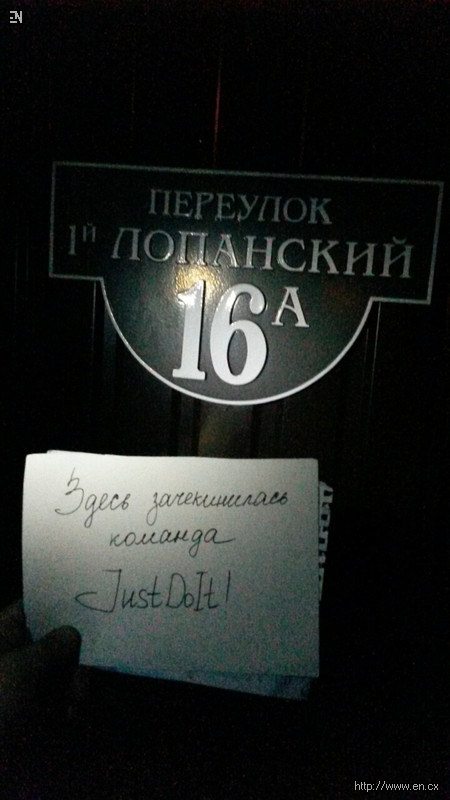 EN
ПЕРЕУЛОК
1Й ЛОПАНСКИЙ
16А
Здесь зачекинилась
команда
JustDoIt!
http://www.en.cx